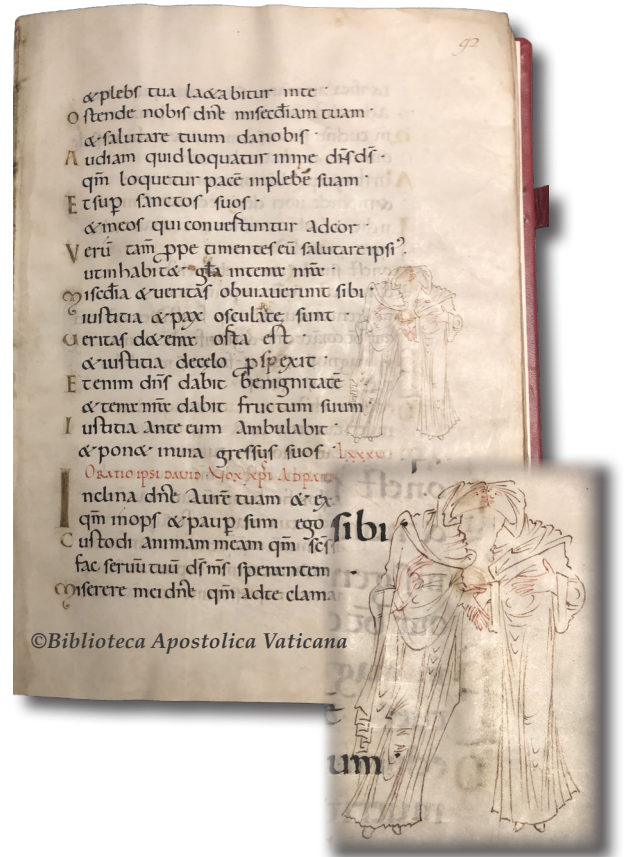 92
& plebs tua læ&abitur inte·
Ostende nobis dn̄e miscdiam tuam·
& salutare tuum danobis·
Audiam quid loquatur inme dn̄s ds̄·
qm̄ loquetur pacē inplebē suam·
Et sup sanctos suos·
& ineos qui convertuntur adcor·
Verū tam̄ ppe timentes eū salutare ipsi'·
ut inhabit& gl̄a interra nr̄a·
Miscdia & veritas obviaverunt sibi·
iustitia & pax osculatę sunt·
Veritas de terra orta est
& iustitia decelo pspexit·
Etenim dn̄s dabit benignitatē
& terra nr̄a dabit fructum suum·
Iustitia ante eum ambulabit·
& pon& in via gressus suos· LXXXV
ORATIO IPSI DAVID· VOX XPI AD PATR
Inclina dn̄e aurē tuam & ex
qm̄ inops & paup sum ego
Custodi animam meam qm̄ scs
fac servū tuū ds̄ ms̄ sperantem
Miserere mei dn̄e qm̄ adte clama
sibi·
um·
©Biblioteca Apostolica Vaticana